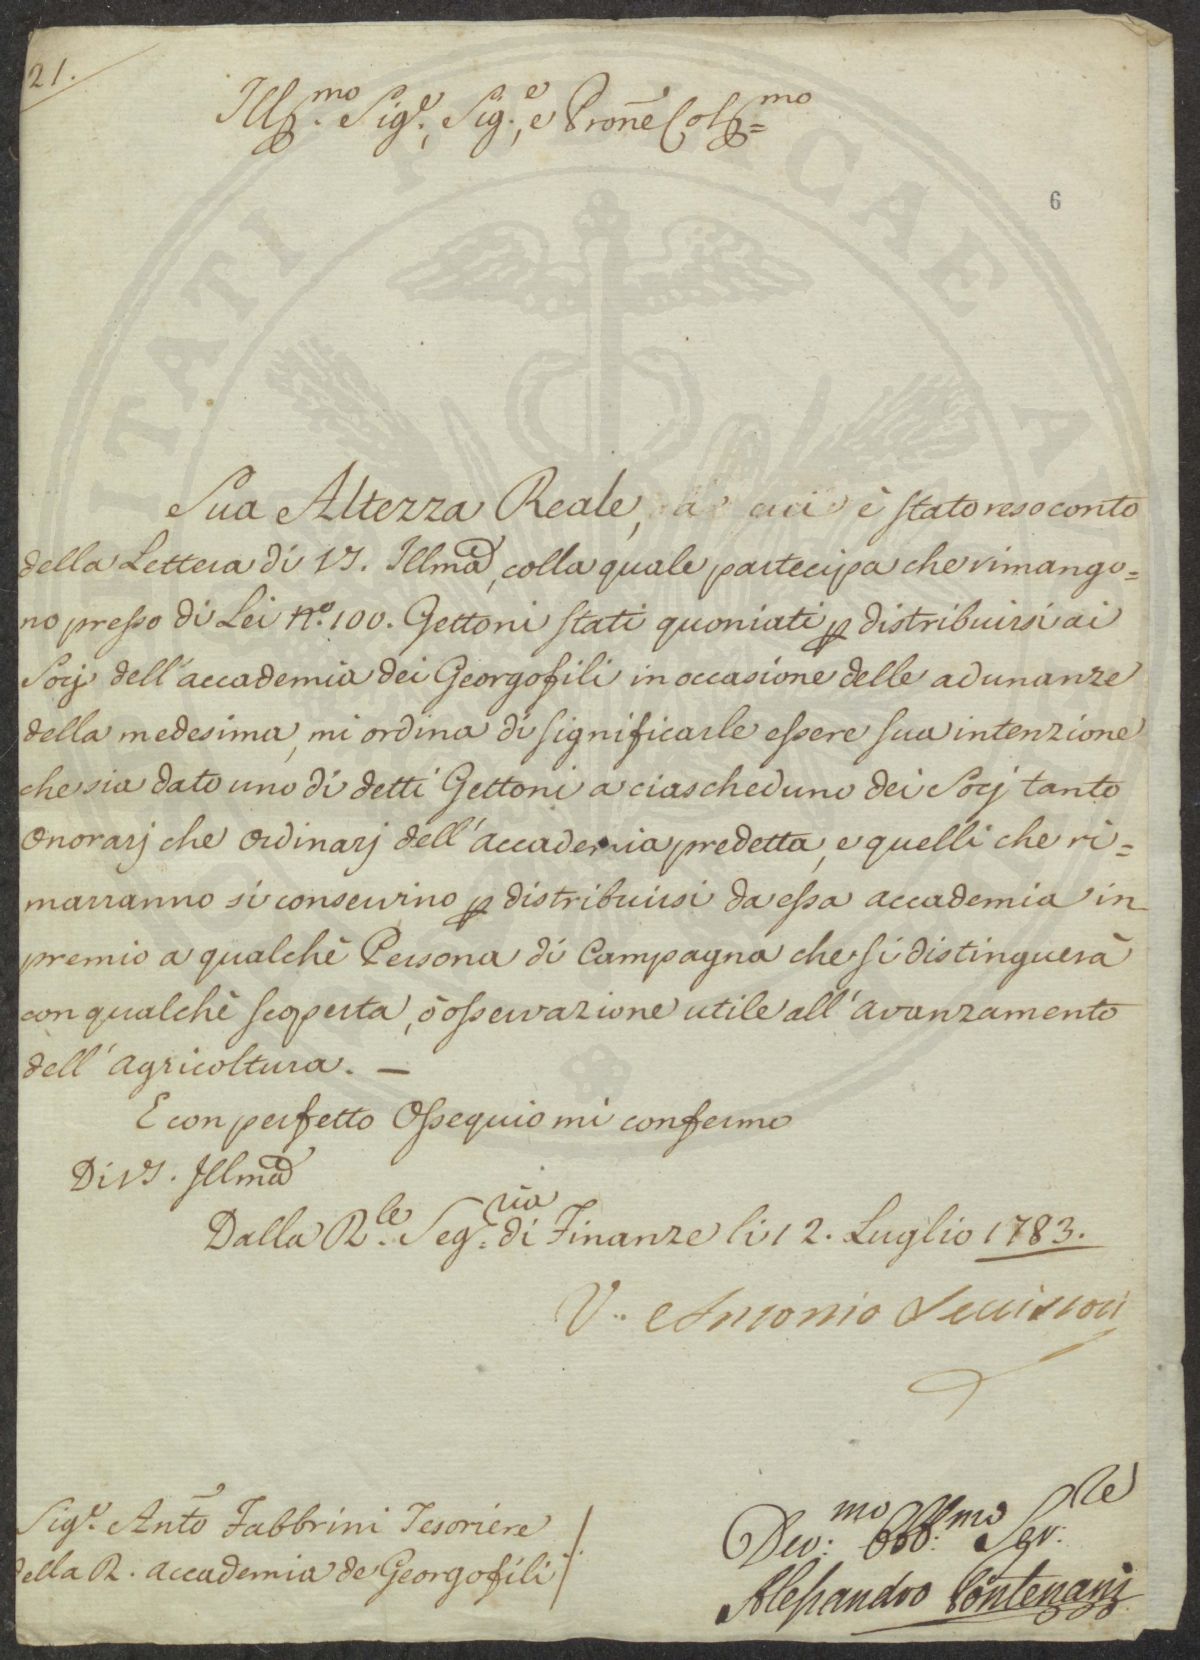 21.
Ill.mo Sig.e, Sig.e, e Prone Col.mo
6
Sua Altezza Reale, a cui è stato reso conto
della Lettera di VS. Illma, colla quale partecipa che rimango=
no presso di Lei N.o 100. Gettoni stati quoniati p distribuirsi ai
Socj dell'accademia dei Georgofili in occasione delle adunanze
della medesima, mi ordina di significarle essere sua intenzione
che sia dato uno di detti Gettoni a ciascheduno dei Socj tanto
Onorarj che Ordinarj dell'accademia predetta, e quelli che ri=
marranno si conservino p distribuirsi da essa accademia in
premio a qualchè Persona di Campagna che si distinguerà
con qualchè scoperta, ò osservazione utile all'avanzamento
dell'Agricoltura. —
E con perfetto Ossequio mi confermo
Di VS. Illma
Dalla R.le Seg.ria di Finanze li 12. Luglio 1783.
V. Antonio
Sig.e Anto Fabbrini Tesoriere
della R. accademia de Georgofili
Dev:mo Obb:mo Ser:re
Alessandro Pontenani
ITATI PUBLICAE AU